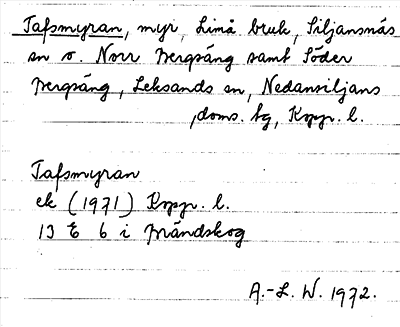 Tafsmyran, myr, Limå bruk, Siljansnäs
sn o. Norr Bergsäng samt Söder
Bergsäng, Leksands sn, Nedansiljans
doms. tg, Kopp. l.
Tafsmyran
ek (1971) Kopp. l.
13 E 6 i Brändskog
A.-L. W. 1972.